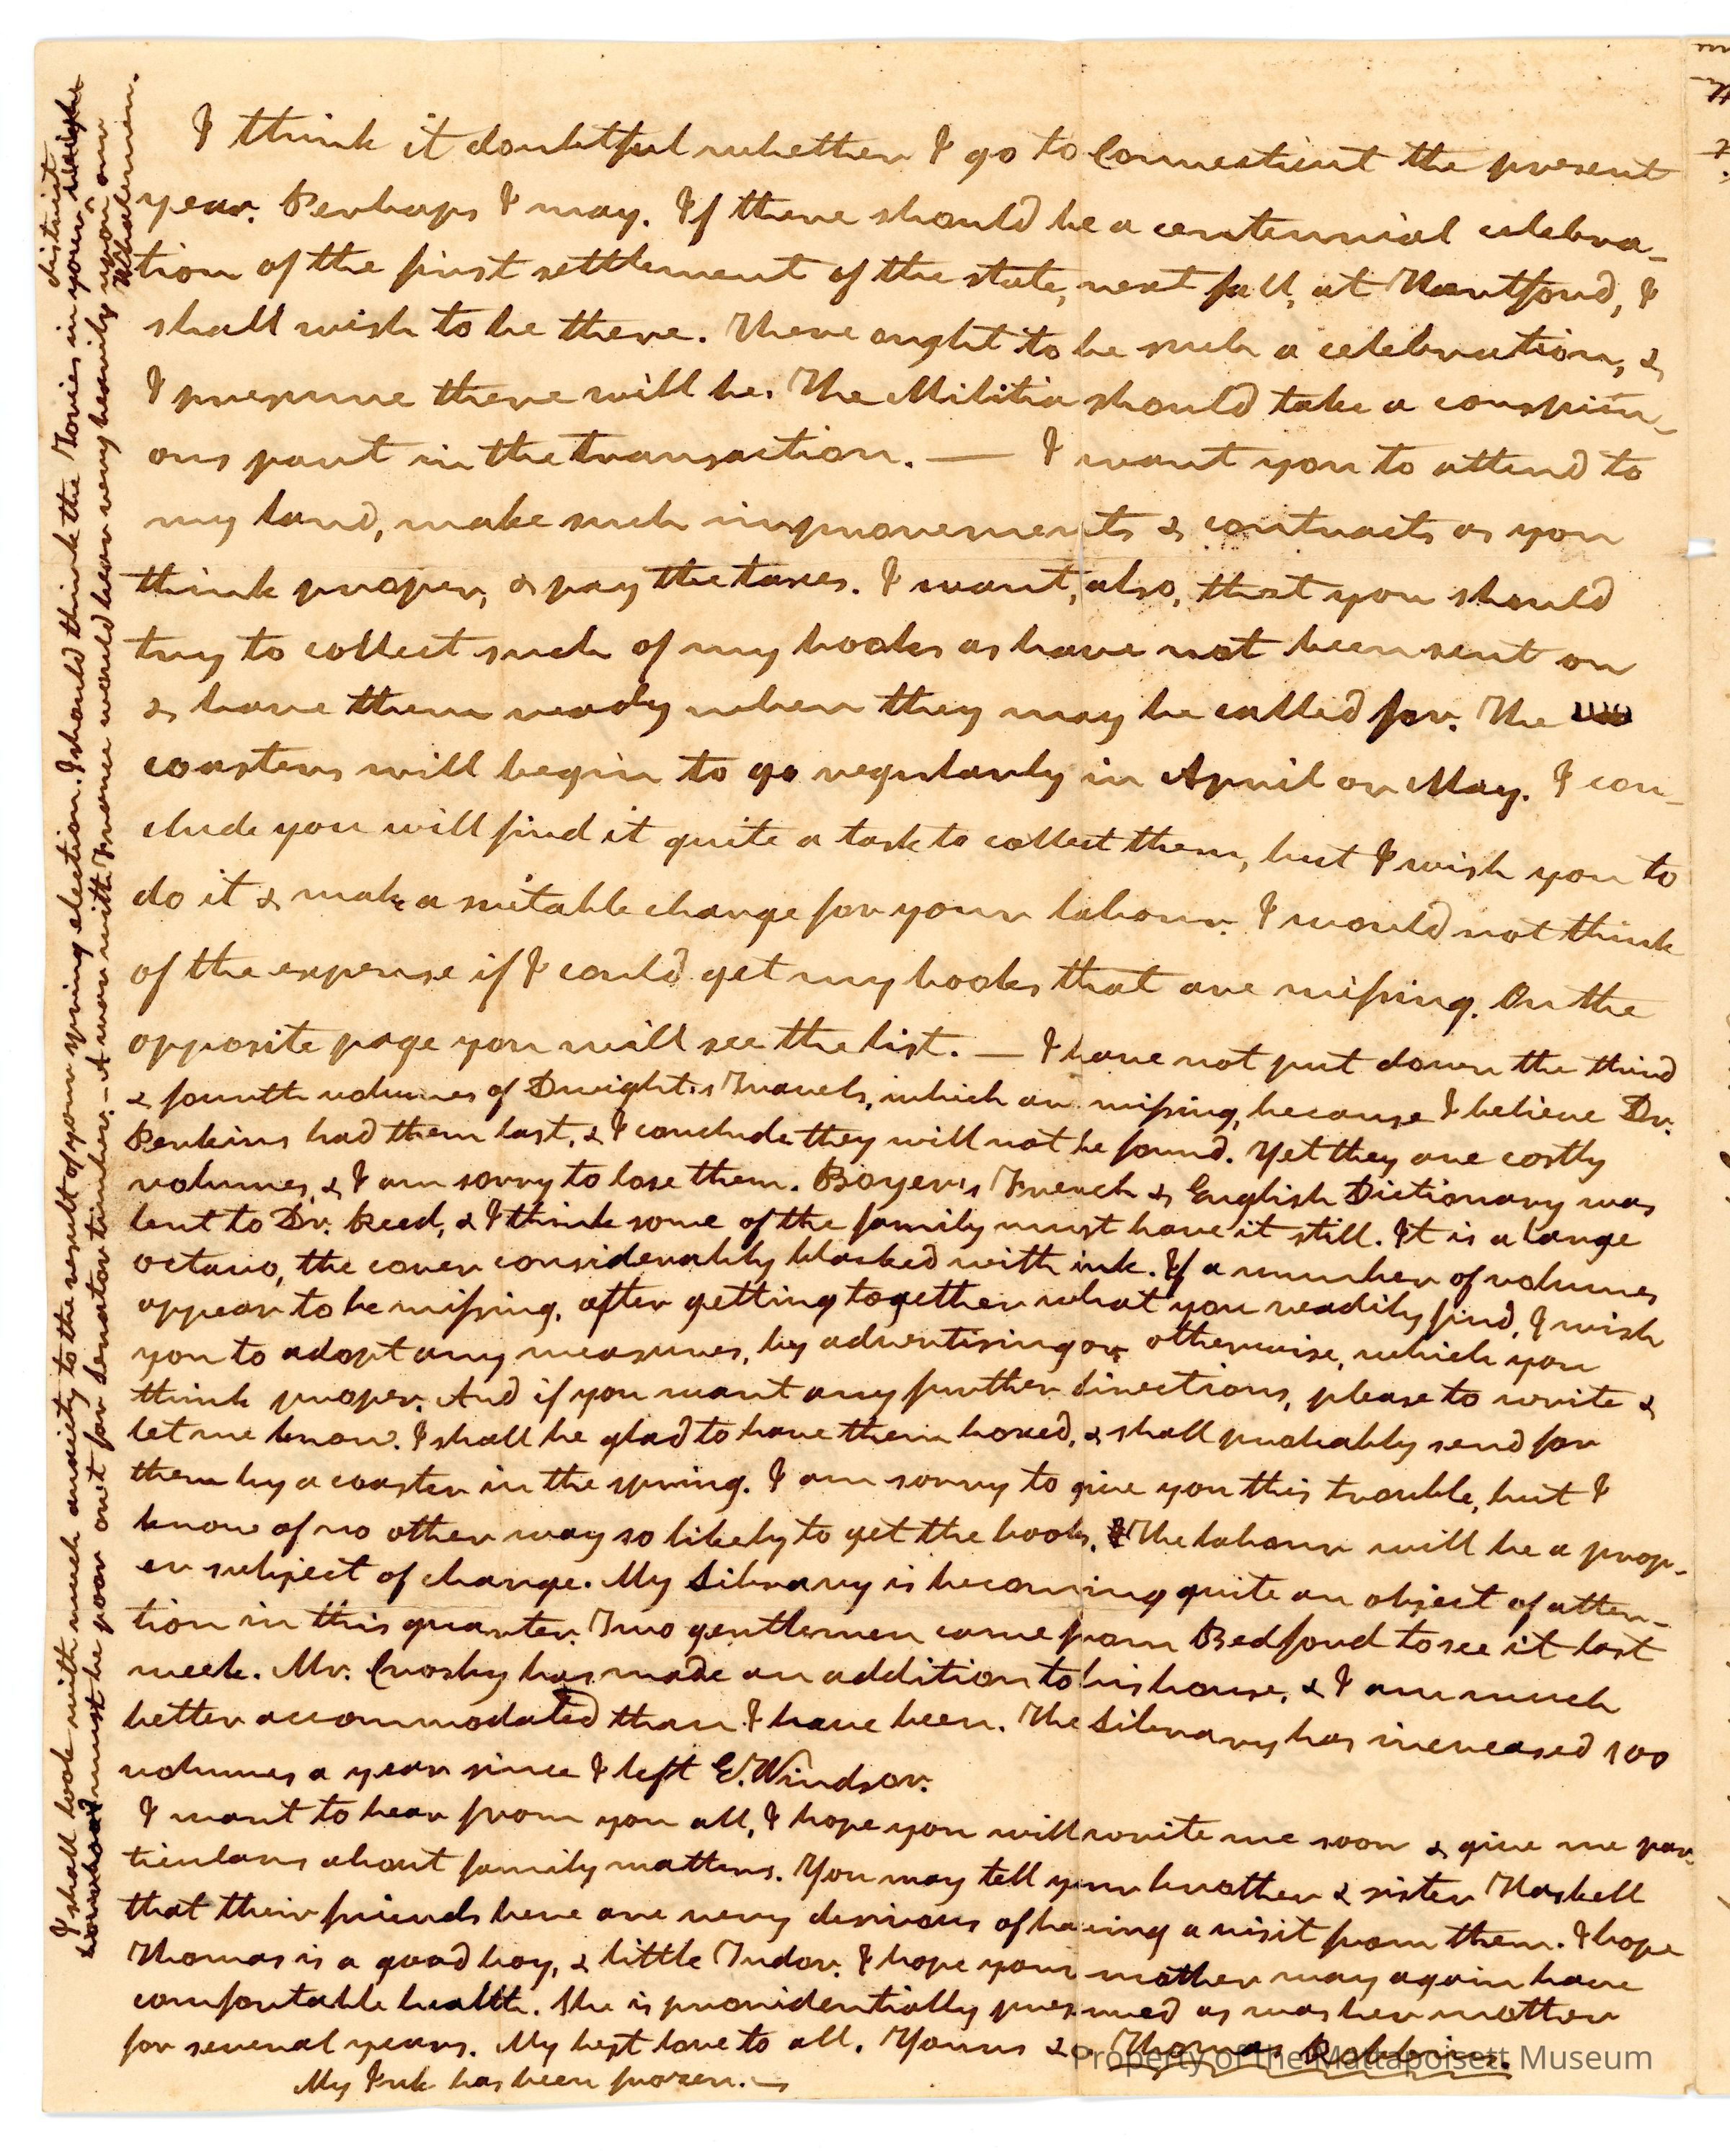 I think it doubtful whether I go to Connecticut the present
year. Perhaps I may. If there should be a centennial celebra-
tion of the first settlement of the state, next fall, at Hartford, I
shall wish to be there. There ought to be such a celebration, &
I presume there will be. The Militia should take a conspicu-
ous part in the transaction. — I want you to attend to
my land, make such improvements & contracts as you
think proper, & pay the taxes. I want, also, that you should
try to collect such of my books as have not been sent on
& have them ready when they may be called for. The
coasters will begin to go regularly in April or May. I con-
clude you will find it quite a task to collect them, but I wish you to
do it & make a suitable charge for your labour. I would not think
of the expense if I could get my books that are missing. On the
opposite page you will see the list. — I have not put down the third
& fourth volumes of Dwight's Travels, which are missing, because I believe Dr.
Perkins had them last, & I conclude they will not be found. Yet they are costly
volumes, & I am sorry to lose them. Boyer's French & English Dictionary was
lent to Dr. Reed, & I think some of the family must have it still. It is a large
octavo, the cover considerably blacked with ink. If a number of volumes
appear to be missing, after getting together what you readily find, I wish
you to adopt any measures, by advertising or otherwise, which you
think proper. And if you want any further directions, please to write &
let me know. I shall be glad to have them boxed, & shall probably send for
them by a coaster in the spring. I am sorry to give you this trouble, but I
know of no other way so likely to get the books. The labour will be a prop-
er subject of charge. My Library is becoming quite an object of atten-
tion in this quarter. Two gentlemen came from Bedford to see it last
week. Mr. Crosby has made an addition to his house, & I am much
better accommodated than I have been. The Library has increased 100
volumes a year since I left E. Windsor.
I want to hear from you all, I hope you will write me soon & give me par-
ticulars about family matters. You may tell your brother & sister Haskell
that their friends here are very desirous of having a visit from them. I hope
Thomas is a good boy, & little Tudor. I hope your mother may again have
comfortable health. She is providentially preserved as was her mother
for several years. My best love to all. Yours &c Thomas Robbins.
My Ink has been frozen. —
I shall look with much anxiety to the result of your spring election. I should think the Tories in your
district
must be poor onet for Senator timber. — A war with France would bear very heavily upon our
Whalemen.
Property of the Mattapoisett Museum